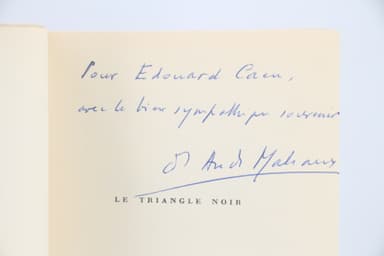 Pour Edouard Caen,
avec le bien sympathique souvenir
d'André Malraux
LE TRIANGLE NOIR